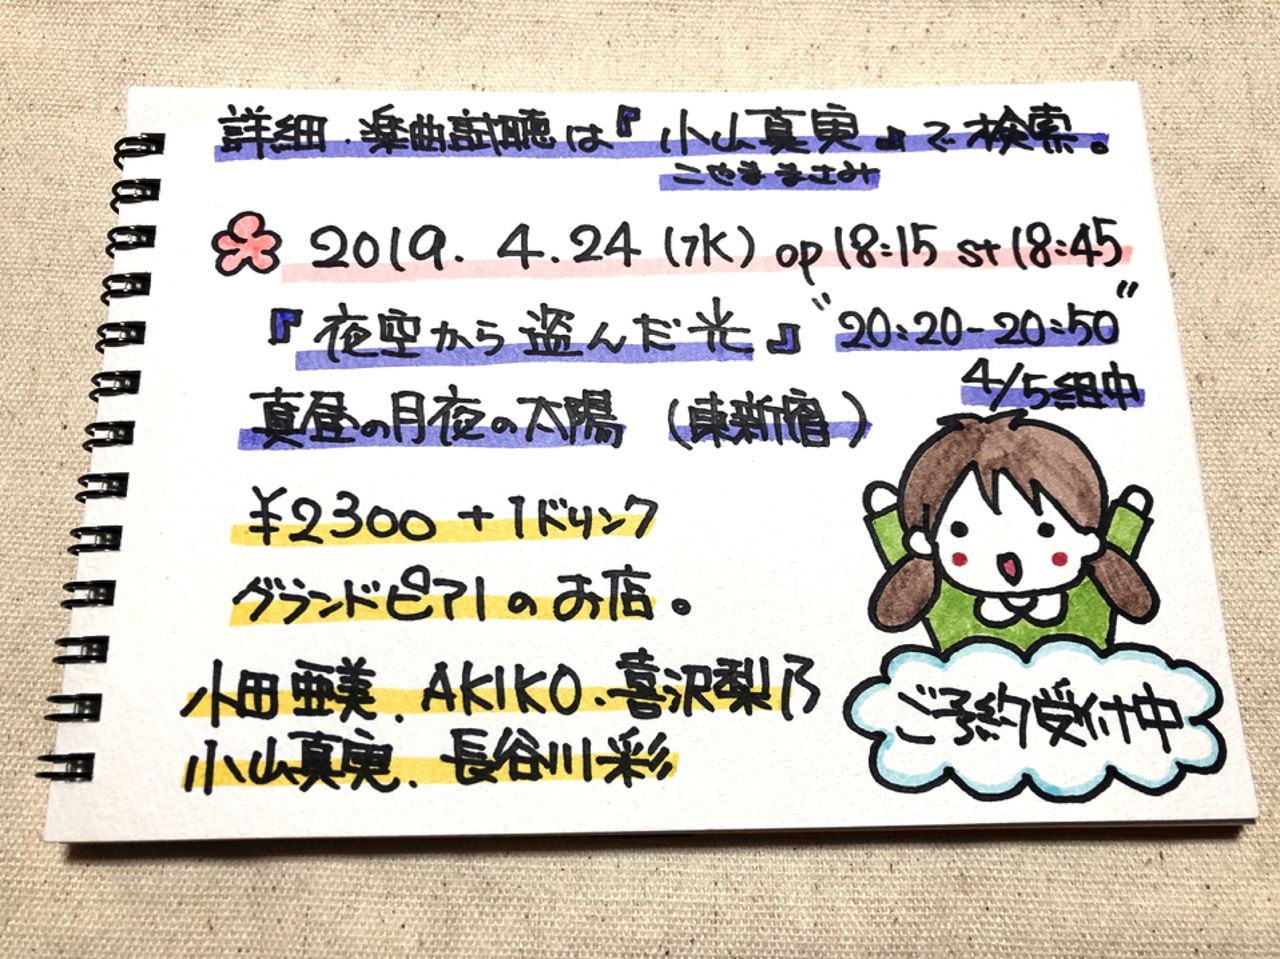 詳細・楽曲試聴は『小山真実』で検索。
こやままさみ
2019.4.24(水) op18:15 st18:45
『夜空から盗んだ光』 "20:20-20:50"
4/5組中
真昼の月夜の太陽 (東新宿)
¥2300+1ドリンク
グランドピアノのお店。
小田亜美、AKIKO・喜沢梨乃
小山真実、長谷川彩
ご予約受付中